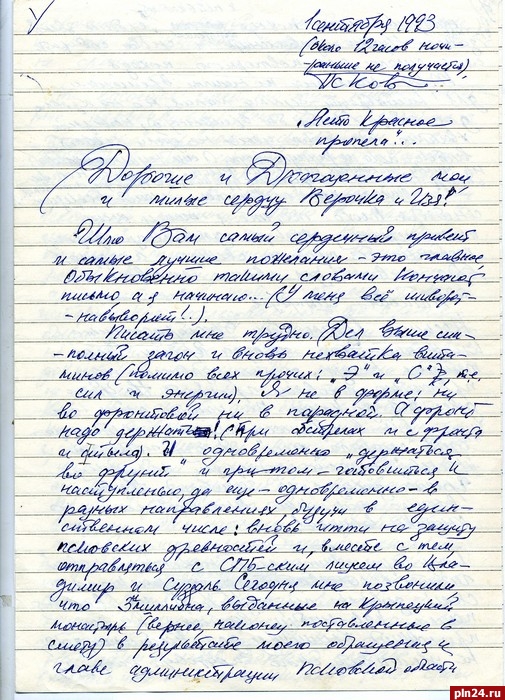 1 сентября 1993
(около 12 часов ночи-
-раньше не получается)
Псков
"Лето красное
пропела"...
Дорогие и Драгоценные мои
и милые сердцу Верочка и Изя!
Шлю Вам самый сердечный привет
и самые лучшие пожелания - это главное,
Обыкновенно такими словами кончают
письмо, а я начинаю... (У меня всё шиворот-
-навыворот!..).
Писать мне трудно. Дел выше
-полный загон и вновь нехватка вита-
минов (помимо всех прочих: "Э" и "С", т.е.
сил и энергии). Я не в форме: ни
во фронтовой ни в парадной. А фронт
надо держать! (При обстрелах и с фронта
и с тыла). И одновременно "держаться
во фрунт" и при том - готовиться к
наступлению, да еще - одновременно - в
разных направлениях, будучи в един-
ственном числе: вновь итти на защиту
псковских древностей и, вместе с тем,
отправляться с СПБ-ским лицеем во Вла-
димир и Суздаль. Сегодня мне позвонили,
что 3 миллиона, выданные на Крыпецкий
монастырь (вернее, наконец поставленные в
смету) в результате моего обращения к
главе администрации Псковской области
pln24.ru